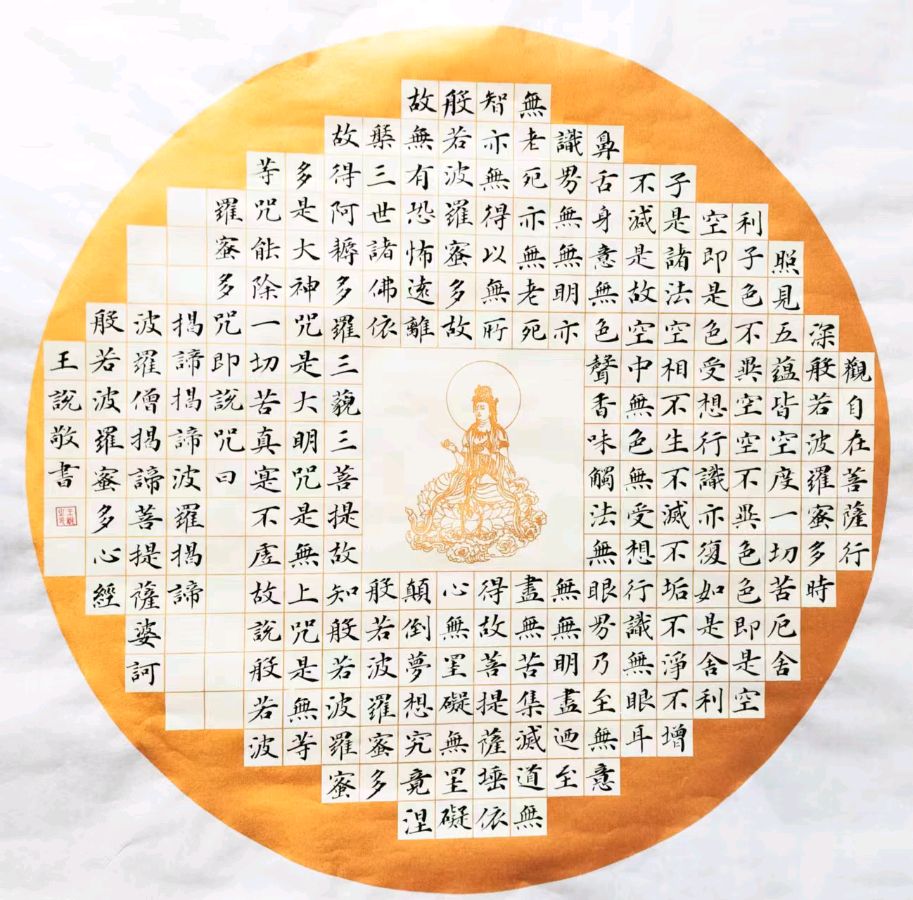 觀自在菩薩行
深般若波羅蜜多時
照見五蘊皆空度一切苦厄舍
利子色不異空空不異色色即是空
空即是色受想行識亦復如是舍利
子是諸法空相不生不滅不垢不淨不增
不減是故空中無色無受想行識無眼耳
鼻舌身意無色聲香味觸法無眼界乃至無意
識界無無明亦無無明盡迺至
無老死亦無老死盡無苦集滅道無
智亦無得以無所得故菩提薩埵依
般若波羅蜜多故心無罣礙無罣礙
故無有恐怖遠離顛倒夢想究竟涅
槃三世諸佛依般若波羅蜜多
故得阿耨多羅三藐三菩提故知般若波羅蜜
多是大神咒是大明咒是無上咒是無等
等咒能除一切苦真寔不虛故說般若波
羅蜜多咒即說咒曰
揭諦揭諦波羅揭諦
波羅僧揭諦菩提薩婆訶
般若波羅蜜多心經
王說敬書